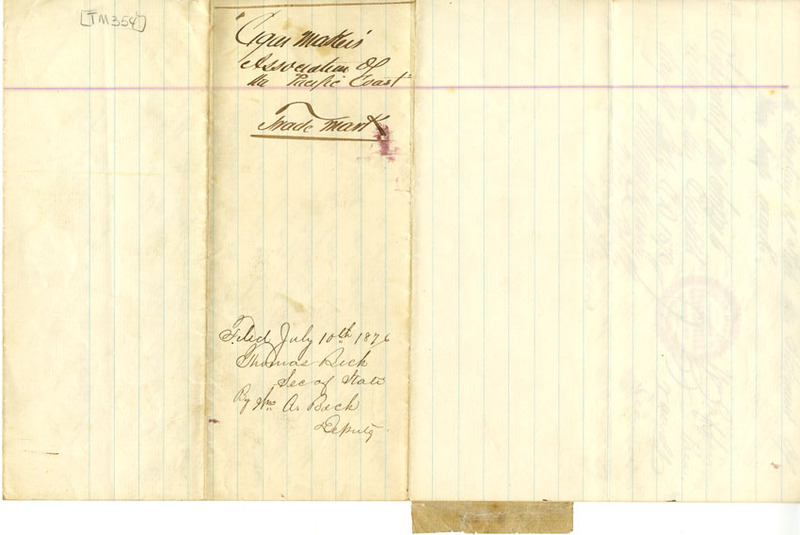 [TM354]
Cigar Makers
Association Of
the Pacific Coast
Trade Mark
Filed July 10th 1876
Thomas Beck
Sec of State
By Wm A. Beck
Deputy